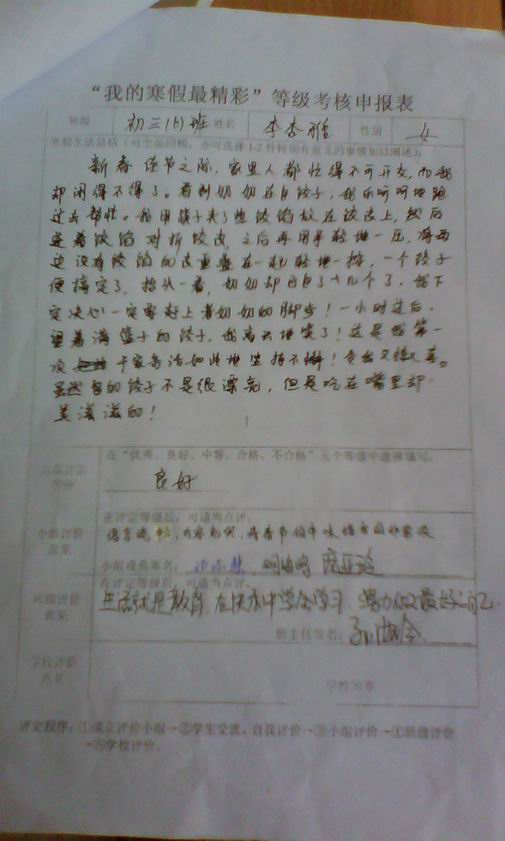 “我的寒假最精彩”等级考核申报表
班级 初三(6)班 姓名 李杏雅 性别 女
寒假生活总结(可全面回顾,亦可选择1-2件特别有意义的事情加以阐述):
新春佳节之际,家里人都忙得不可开交,而我
却闲得不得了。看到奶奶在包饺子,我乐呵呵地跑
过去帮忙。我用筷子夹了些饺馅放在饺皮上,然后
连着饺馅对折饺皮,之后再用手轻地一压,将两
边没有饺馅的皮重叠在一起轻地一捏,一个饺子
便搞定了。抬头一看,奶奶却已包了十几个了,我下
定决心一定要赶上者奶奶的脚步!一小时过后,
望着满篮子的饺子,我高兴地笑了!这是我第一
次 干家务活如此地坚持不懈!
虽然包的饺子不是很漂亮,但是吃在嘴里却
美滋滋的!
自我评价等级
在“优秀、良好、中等、合格、不合格”五个等级中选择填写:
良好
小组评价意见
在评定等级后,可适当点评。
语言流畅,内容充实,将春节的年味
小组成员签名:
班级评价意见
在评定等级后,可适当点评。
生活就是教育,在快乐中学会学习,努力做最好的自己
班主任签名:
学校评价意见
学校公章
评定程序:①成立评价小组→②学生交流,自我评价→③小组评价→④班级评价
→⑤学校评价.